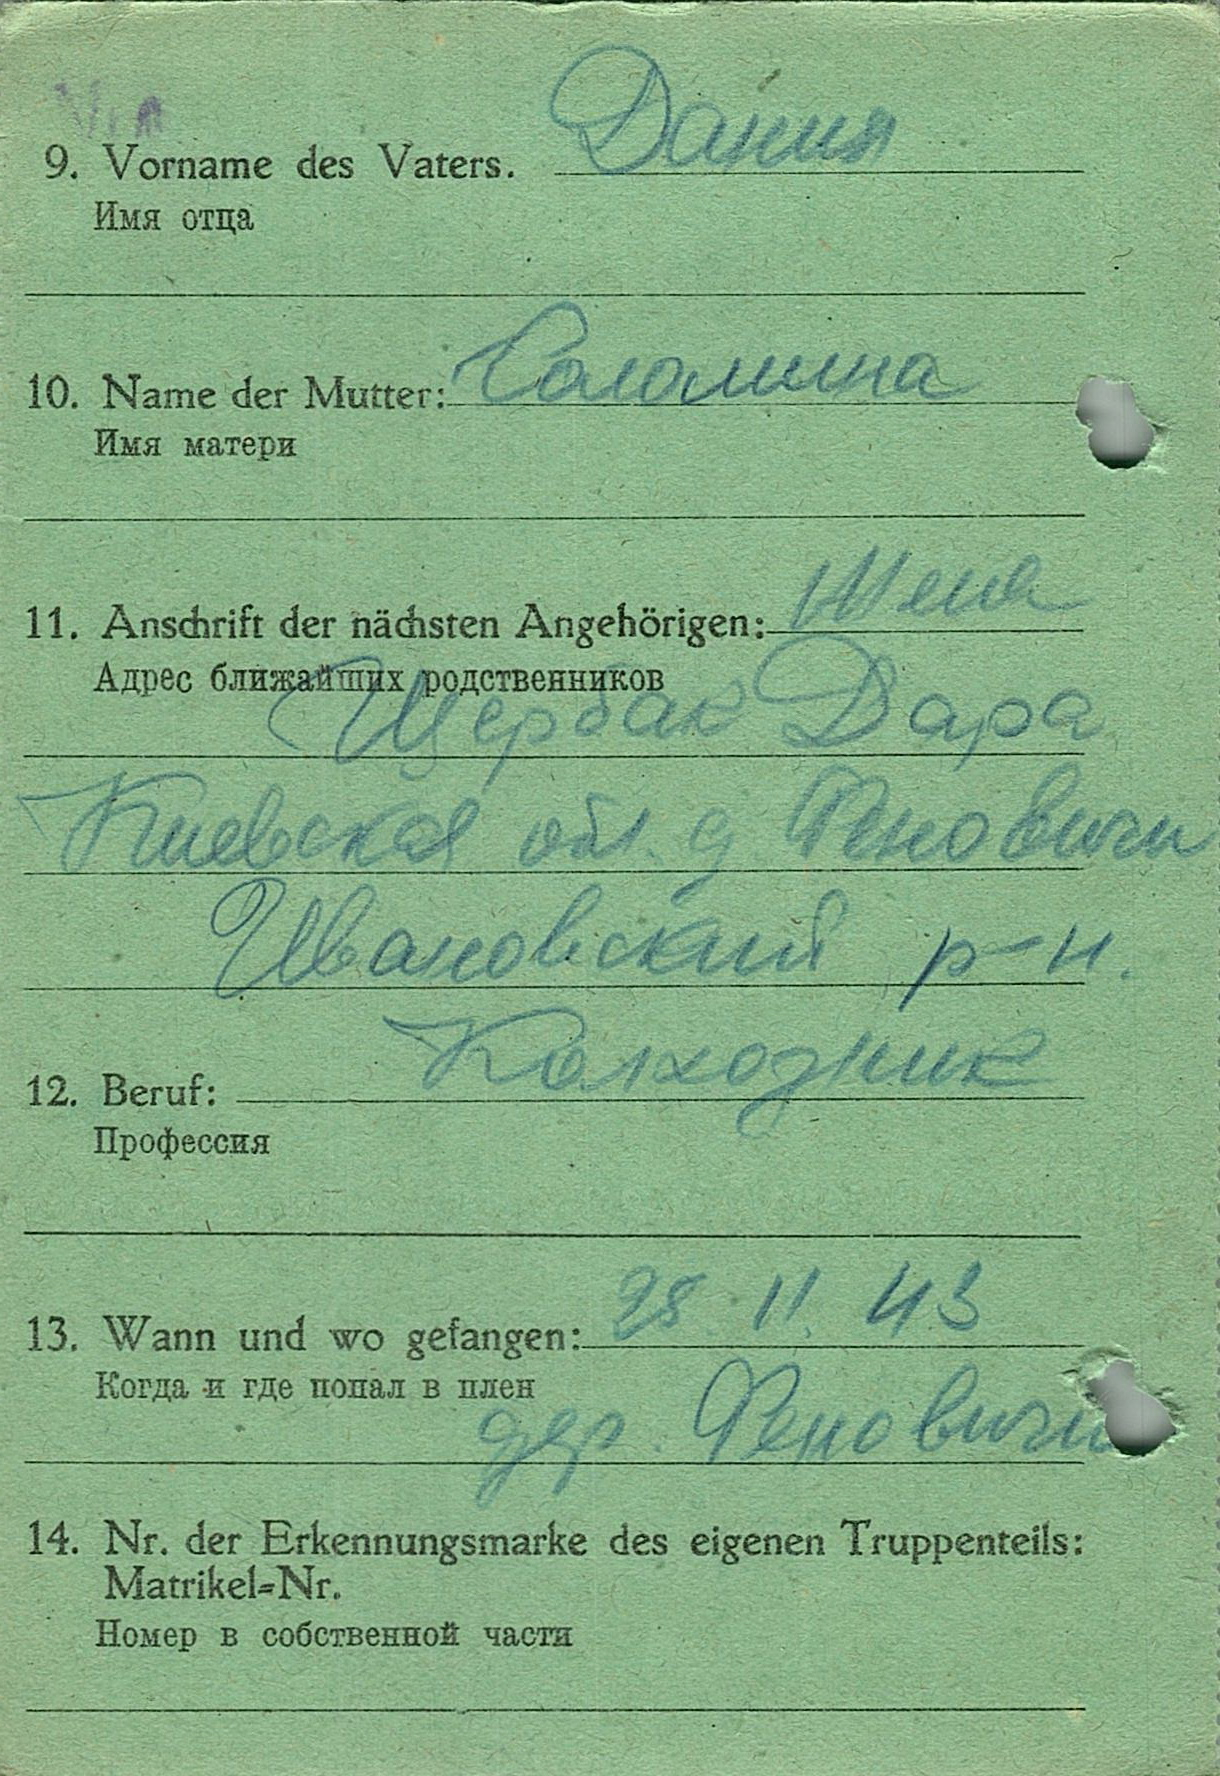 9. Vorname des Vaters. Данил
Имя отца
10. Name der Mutter: Соломина
Имя матери
11. Anschrift der nächsten Angehörigen: Жена
Адрес ближайших родственников
Щербак Дара
Киевская обл. д. Феновичи
Ивановский р-н.
12. Beruf: Колхозник
Профессия
13. Wann und wo gefangen: 28. 11. 43
Когда и где попал в плен
дер. Феновичи
14. Nr. der Erkennungsmarke des eigenen Truppenteils:
Matrikel=Nr.
Номер в собственной части